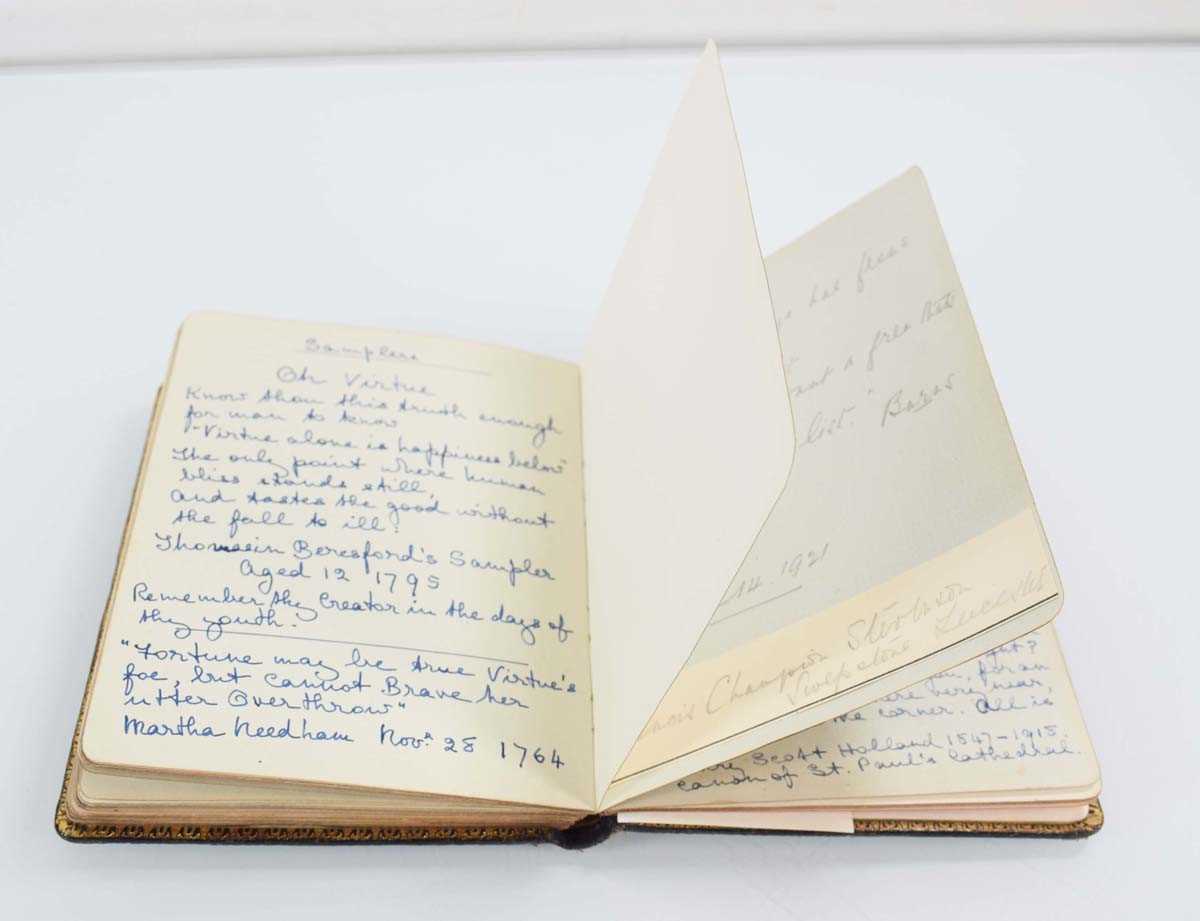 Samplers
On Virtue
Know thou this truth enough
for man to know
"Virtue alone is happiness below"
The only point where human
bliss stands still,
and tastes the good without
the fall to ill.
Beresford's Sampler
aged 12 1795
Remember thy Creator in the days of
thy youth.
"Fortune may be true Virtue's
foe, but cannot Brave her
utter Overthrow"
Martha Needham Novr 28 1764
has freed
a free
Burns
14. 1921
Champion
Swepstone
you, for an
very near,
the corner. All is
Scott Holland 1847-1918.
canon of St. Paul's Cathedral.